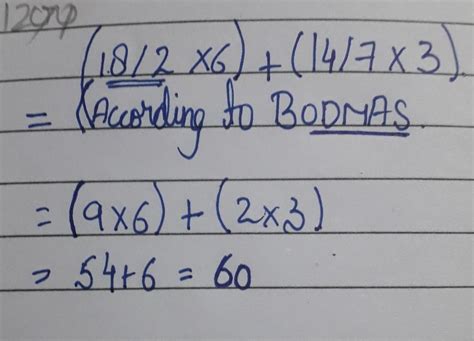 (18/2 ×6) + (14/7 × 3)
= (According to BODMAS.
= (9×6) + (2×3)
= 54+6 = 60